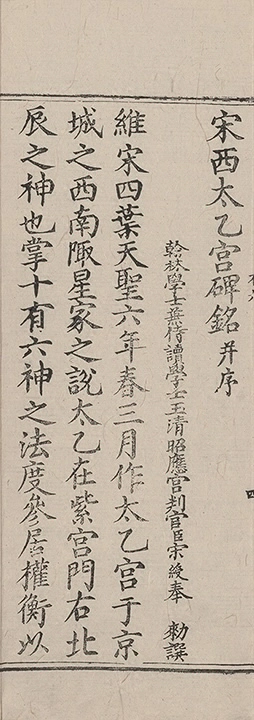 宋西太乙宮碑銘并序
翰林學士兼侍讀學士玉清昭應宮判官臣宋綬奉 勑譔
維宋四葉天聖六年春三月作太乙宮于京
城之西南陬星家之說太乙在紫宮門右北
辰之神也掌十有六神之法度參居權衡以